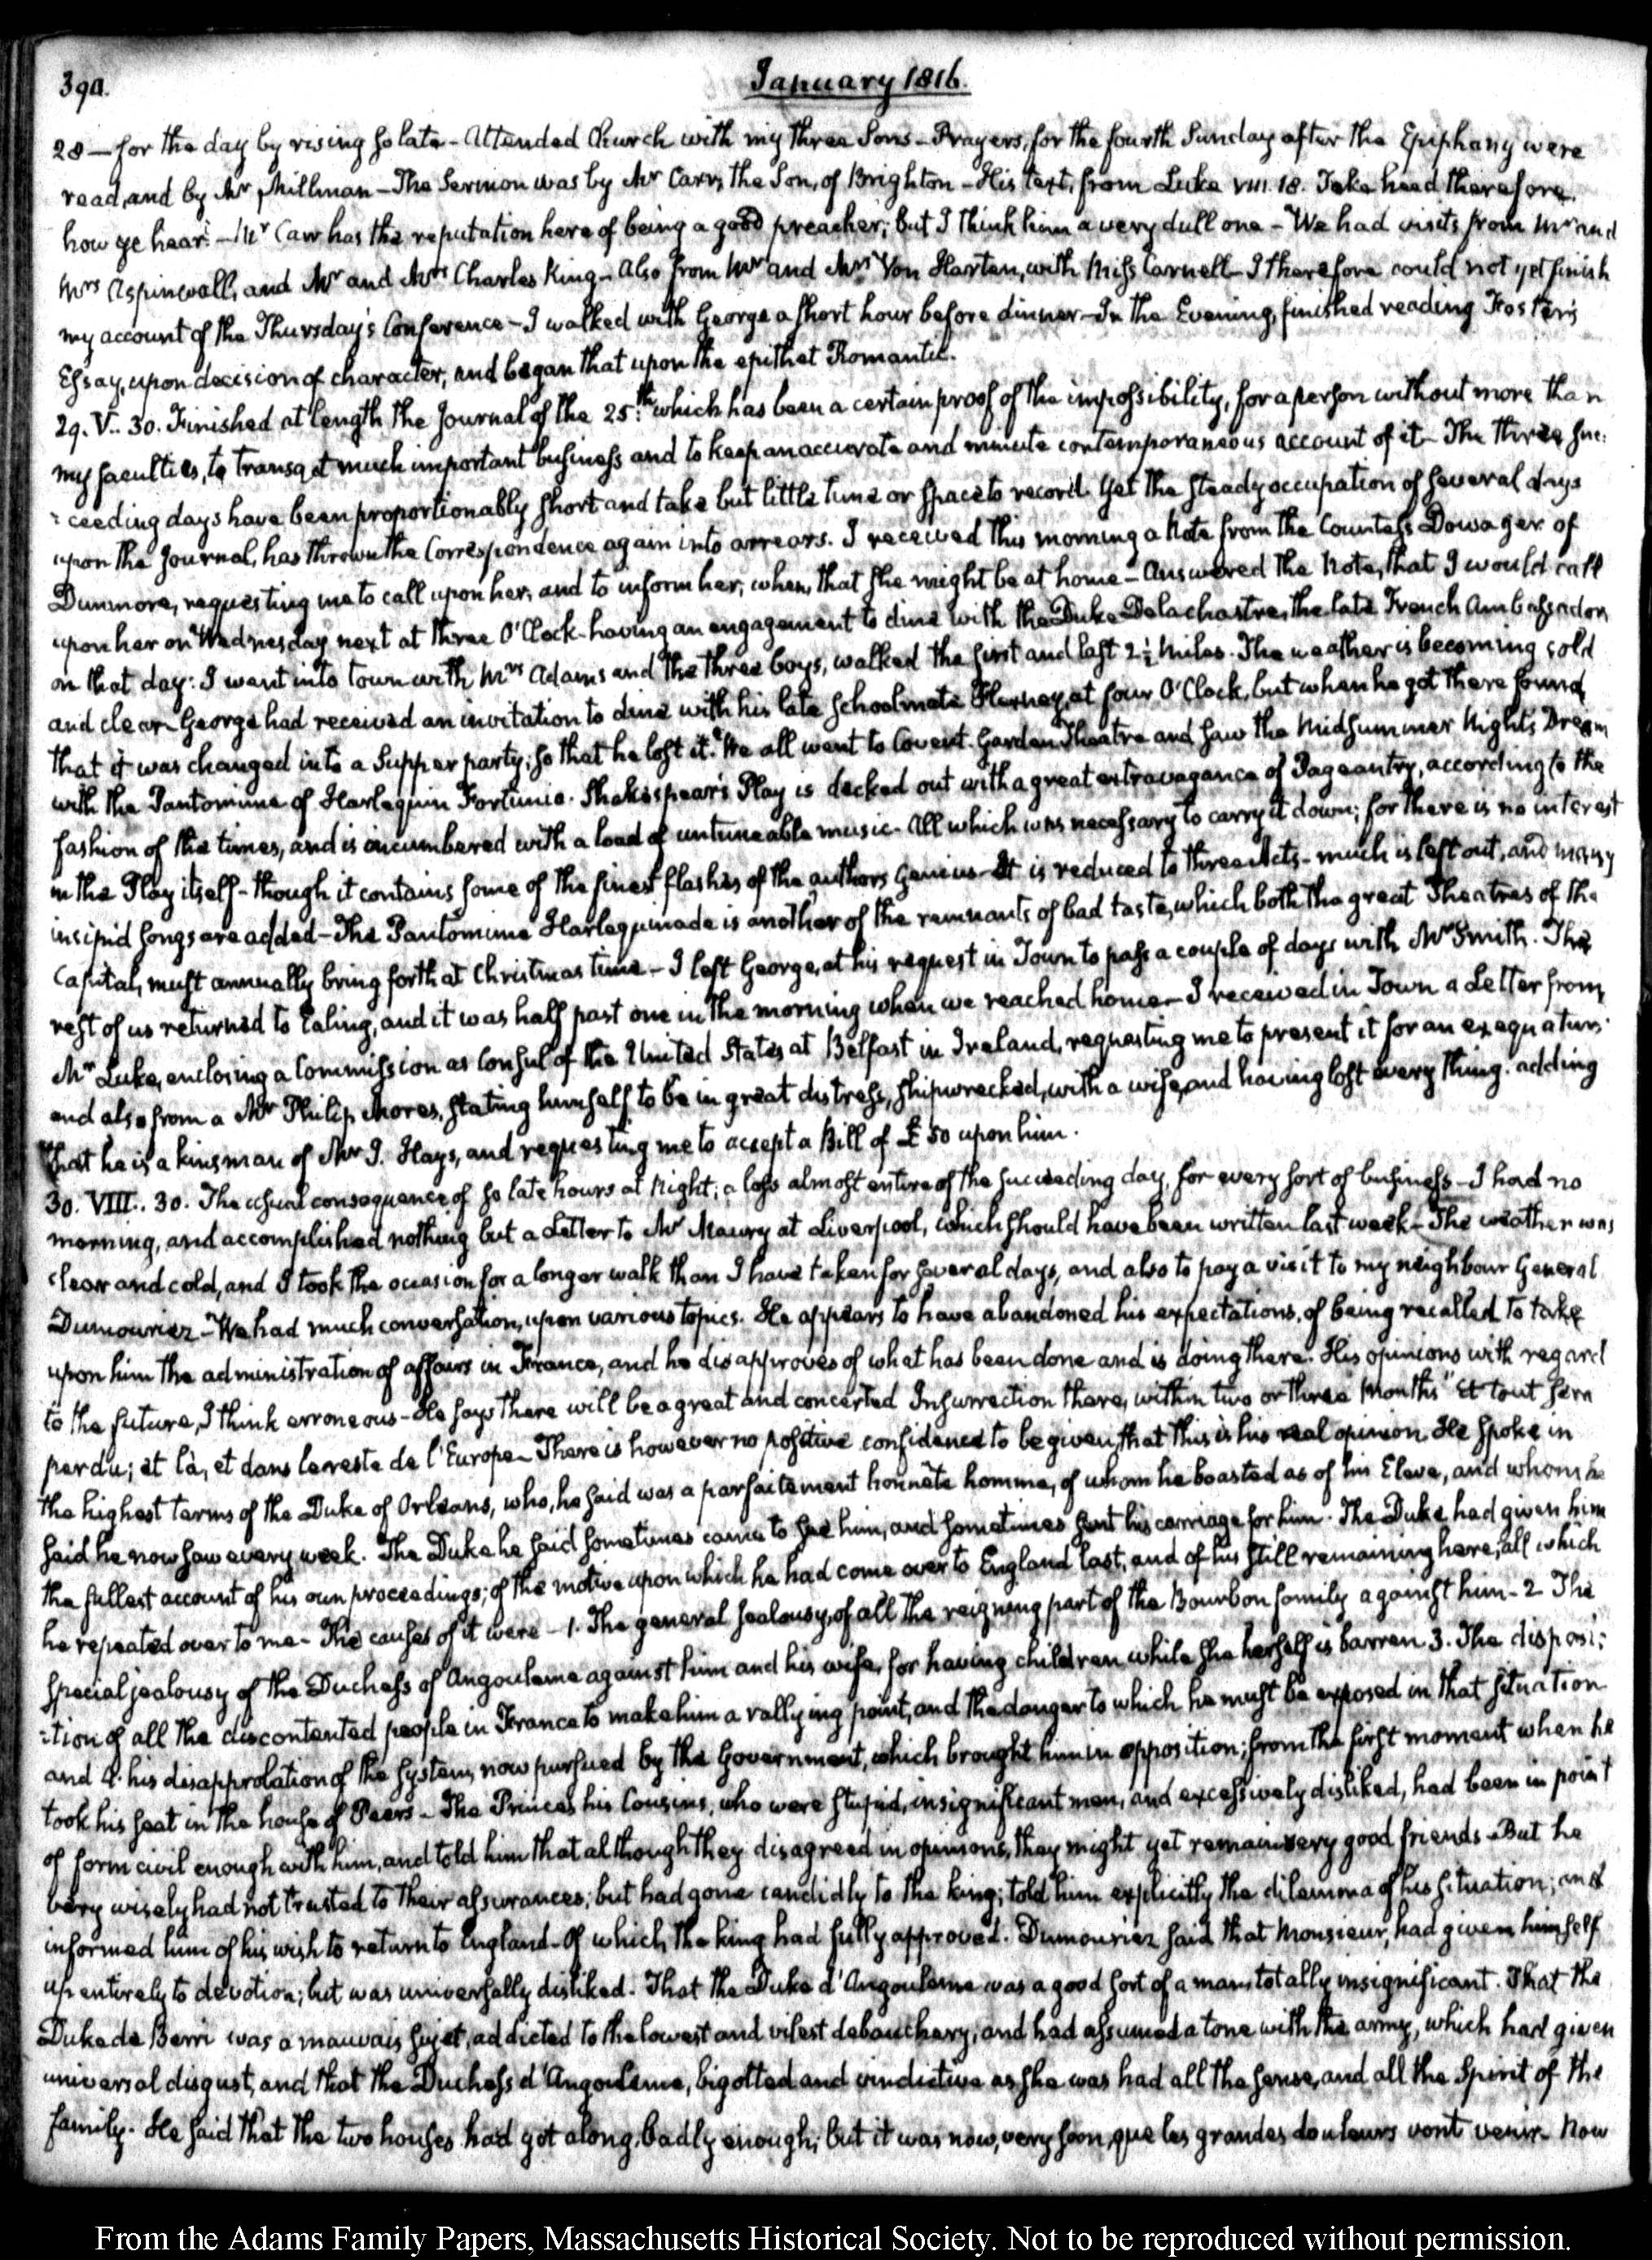 390.
January 1816.
28 — for the day by rising so late - Attended Church with my three Sons - Prayers, for the fourth Sunday after the Epiphany were
read, and by Mr Millman - The Sermon was by Mr Carr, the Son, of Brighton - His text, from Luke VIII. 18. Take heed therefore
how ye hear. - Mr Carr has the reputation here of being a good preacher; but I think him a very dull one - We had visits from Mr and
Mrs Aspinwall, and Mr and Mrs Charles King - Also from Mr and Mrs Von Harten, with Miss Carnell - I therefore could not yet finish
my account of the Thursday's Conference - I walked with George a short hour before dinner - In the Evening, finished reading Foster's
Essay, upon decision of character, and began that upon the epithet Romantic.
29. V.. 30. Finished at length the Journal of the 25.th which has been a certain proof of the impossibility, for a person without more than
my faculties, to transact much important business and to keep an accurate and minute contemporaneous account of it - The three suc:
:ceeding days have been proportionably short and take but little time or space to record. Yet the steady occupation of several days
upon the Journal, has thrown the Correspondence again into arrears. I received this morning a Note from the Countess Dowager of
Dunmore, requesting me to call upon her, and to inform her, when, that she might be at home - Answered the Note, that I would call
upon her on Wednesday next at three O'Clock - having an engagement to dine with the Duke Delachastre, the late French Ambassador
on that day: I went into town with Mrs Adams and the three boys, walked the first and last 2½ Miles. The weather is becoming cold
and clear - George had received an invitation to dine with his late Schoolmate at four O'Clock, but when he got there found
that it was changed into a Supper party; so that he lost it. We all went to Covent Garden Theatre and saw the Midsummer Night's Dream
with the Pantomime of Harlequin Fortunio. Shakespear's Play is decked out with a great extravagance of Pageantry, according to the
fashion of the times, and is incumbered with a load of untuneable music - All which was necessary to carry it down; for there is no interest
in the Play itself - though it contains some of the finest flashes of the authors Genius - It is reduced to three Acts - much is left out, and many
insipid songs are added - The Pantomime Harlequinade is another of the remnants of bad taste, which both the great Theatres of the
Capital, must annually bring forth at Christmas time - I left George, at his request in Town to pass a couple of days with Mr Smith. The
rest of us returned to Ealing, and it was half past one in the morning when we reached home - I received in Town a Letter from
Mr Luke, enclosing a Commission as Consul of the United States at Belfast in Ireland, requesting me to present it for an exequatur;
and also from a Mr Philip Mores, stating himself to be in great distress, shipwrecked, with a wife, and having lost every thing. adding
that he is a kinsman of Mr I. Hays, and requesting me to accept a Bill of £50 upon him.
30. VIII.. 30. The usual consequence of so late hours at Night; a loss almost entire of the succeeding day, for every sort of business - I had no
morning, and accomplished nothing but a Letter to Mr Maury at Liverpool, which should have been written last week - The weather was
clear and cold, and I took the occasion for a longer walk than I have taken for several days, and also to pay a visit to my neighbour General
Dumouriez - We had much conversation, upon various topics. He appears to have abandoned his expectations, of being recalled to take
upon him the administration of affairs in France, and he disapproves of what has been done and is doing there. His opinions with regard
to the future, I think erroneous - He says there will be a great and concerted Insurrection there, within two or three Months "et tout sera
perdu; et là, et dans le reste de l'Europe - There is however no positive confidence to be given, that this is his real opinion He spoke in
the highest terms of the Duke of Orleans, who, he said was a parfaitement honnête homme, of whom he boasted as of his Eleve, and whom he
said he now saw every week. The Duke he said sometimes came to see him, and sometimes sent his carriage for him. The Duke had given him
the fullest account of his own proceedings; of the motive upon which he had come over to England last, and of his still remaining here, all which
he repeated over to me - The causes of it were - 1. The general jealousy, of all the reigning part of the Bourbon family against him - 2. The
special jealousy of the Duchess of Angouleme against him and his wife, for having children while she herself is barren 3. The disposi:
:tion of all the discontented people in France to make him a rallying point, and the danger to which he must be exposed in that situation
and 4. his disapprobation of the system, now pursued by the Government, which brought him in opposition; from the first moment when he
took his seat in the house of Peers - The Princes his Cousins, who were stupid, insignificant men, and excessively disliked, had been in point
of form civil enough with him, and told him that although they disagreed in opinions, they might yet remain very good friends - But he
very wisely had not trusted to their assurances; but had gone candidly to the king; told him explicitly the dilemma of his situation; and
informed him of his wish to return to England - Of which, the king had fully approved. Dumouriez said that Monsieur, had given himself
up entirely to devotion; but was universally disliked - That the Duke d'Angouleme was a good sort of a man, totally insignificant. That the
Duke de Berri was a mauvais sujet, addicted to the lowest and vilest debauchery, and had assumed a tone with the army, which had given
universal disgust, and that the Duchess d'Angouleme, bigotted and vindictive as she was had all the sense, and all the Spirit of the
family. He said that the two houses had got along, badly enough; but it was now, very soon, que les grandes douleurs vont venir - Now
From the Adams Family Papers, Massachusetts Historical Society. Not to be reproduced without permission.